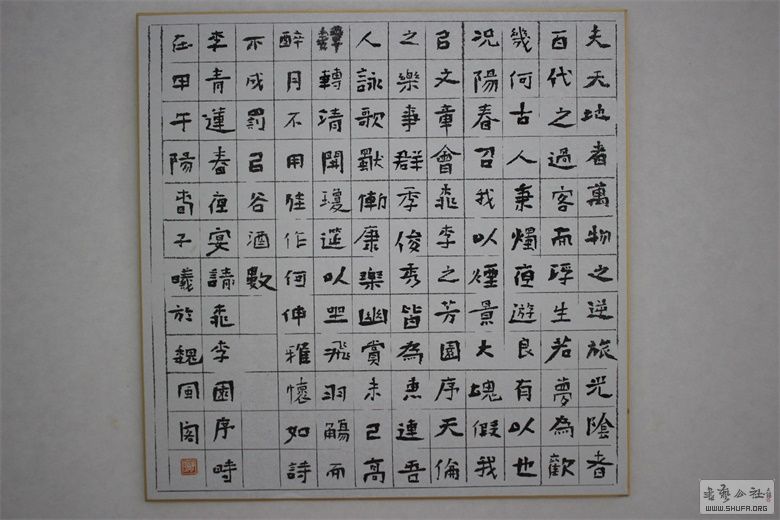 夫天地者萬物之逆旅光陰者
百代之過客而浮生若夢為歡
幾何古人秉燭夜遊良有以也
況陽春召我以煙景大塊假我
以文章會桃李之芳園序天倫
之樂事群季俊秀皆為惠連吾
人詠歌獨慚康樂幽賞未已高
譚轉清開瓊筵以坐飛羽觴而
醉月不用佳作何伸雅懷如詩
不成罰以谷酒數
李青蓮春夜宴請桃李園序時
在甲午陽春子曦於魏風閣
書藝公社
WWW.SHUFA.ORG